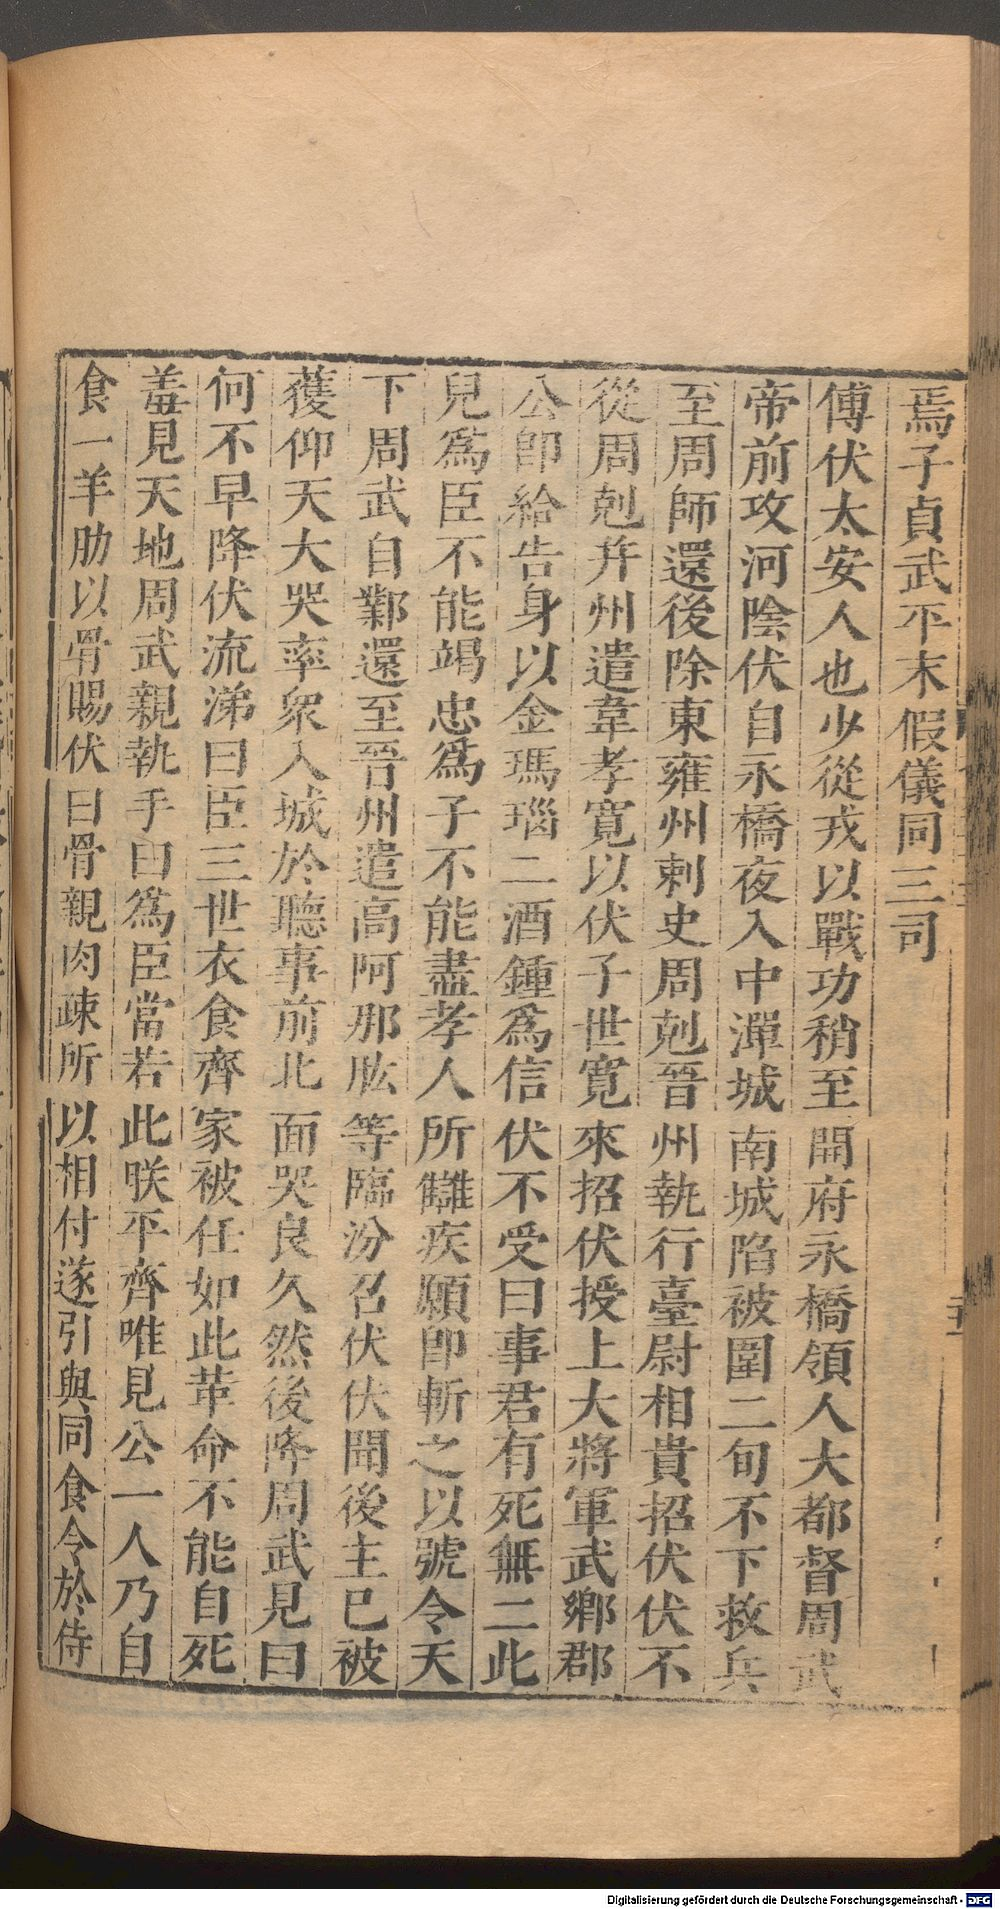 焉子貞武平末假儀同三司
傅伏太安人也少從戎以戰功稍至開府永橋領人大都督周武
帝前攻河陰伏自永橋夜入中潬城南城陷被圍二旬不下救兵
至周師還後除東雍州剌史周剋晉州執行臺尉相貴招伏伏不
從周剋并州遣韋孝寬以伏子世寬來招伏授上大將軍武鄉郡
公卽給告身以金瑪瑙二酒鍾爲信伏不受曰事君有死無二此
兒爲臣不能竭忠爲子不能盡孝人所讎疾願卽斬之以號令天
下周武自鄴還至晉州遣高阿那肱等臨汾召伏伏聞後主已被
獲仰天大哭率衆入城於聽事前北面哭良久然後降周武見曰
何不早降伏流涕曰臣三世衣食齊家被任如此革命不能自死
羞見天地周武親執手曰爲臣當若此朕平齊唯見公一人乃自
食一羊肋以骨賜伏曰骨親肉疎所以相付遂引與同食令於侍
Digitalisierung gefördert durch die Deutsche Forschungsgemeinschaft - DFG